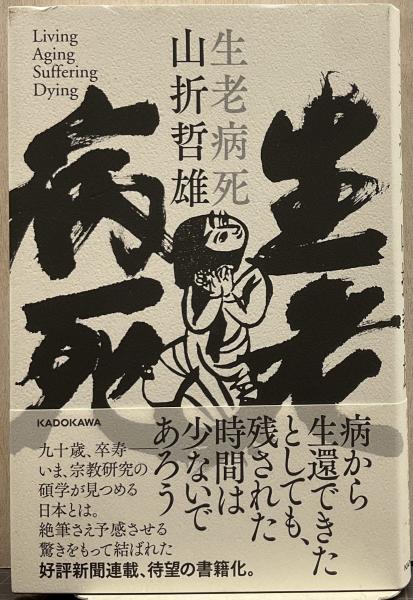 Living
Aging
Suffering
Dying
生老病死
山折哲雄
生老
病死
KADOKAWA
病から
生還できた
としても、
残された
時間は
少ないで
あろう
九十歳、卒寿──
いま、宗教研究の
碩学が見つめる
日本とは。
絶筆さえ予感させる
驚きをもって結ばれた
好評新聞連載、待望の書籍化。